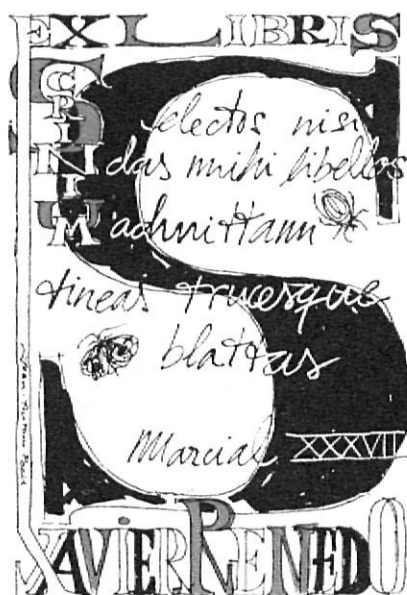 EX LIBRIS
SCRINIUM
Selectos nisi
das mihi libellos
admittam
tineas trucesque
blattas
Marcial XXXVII
XAVIER RENEDO